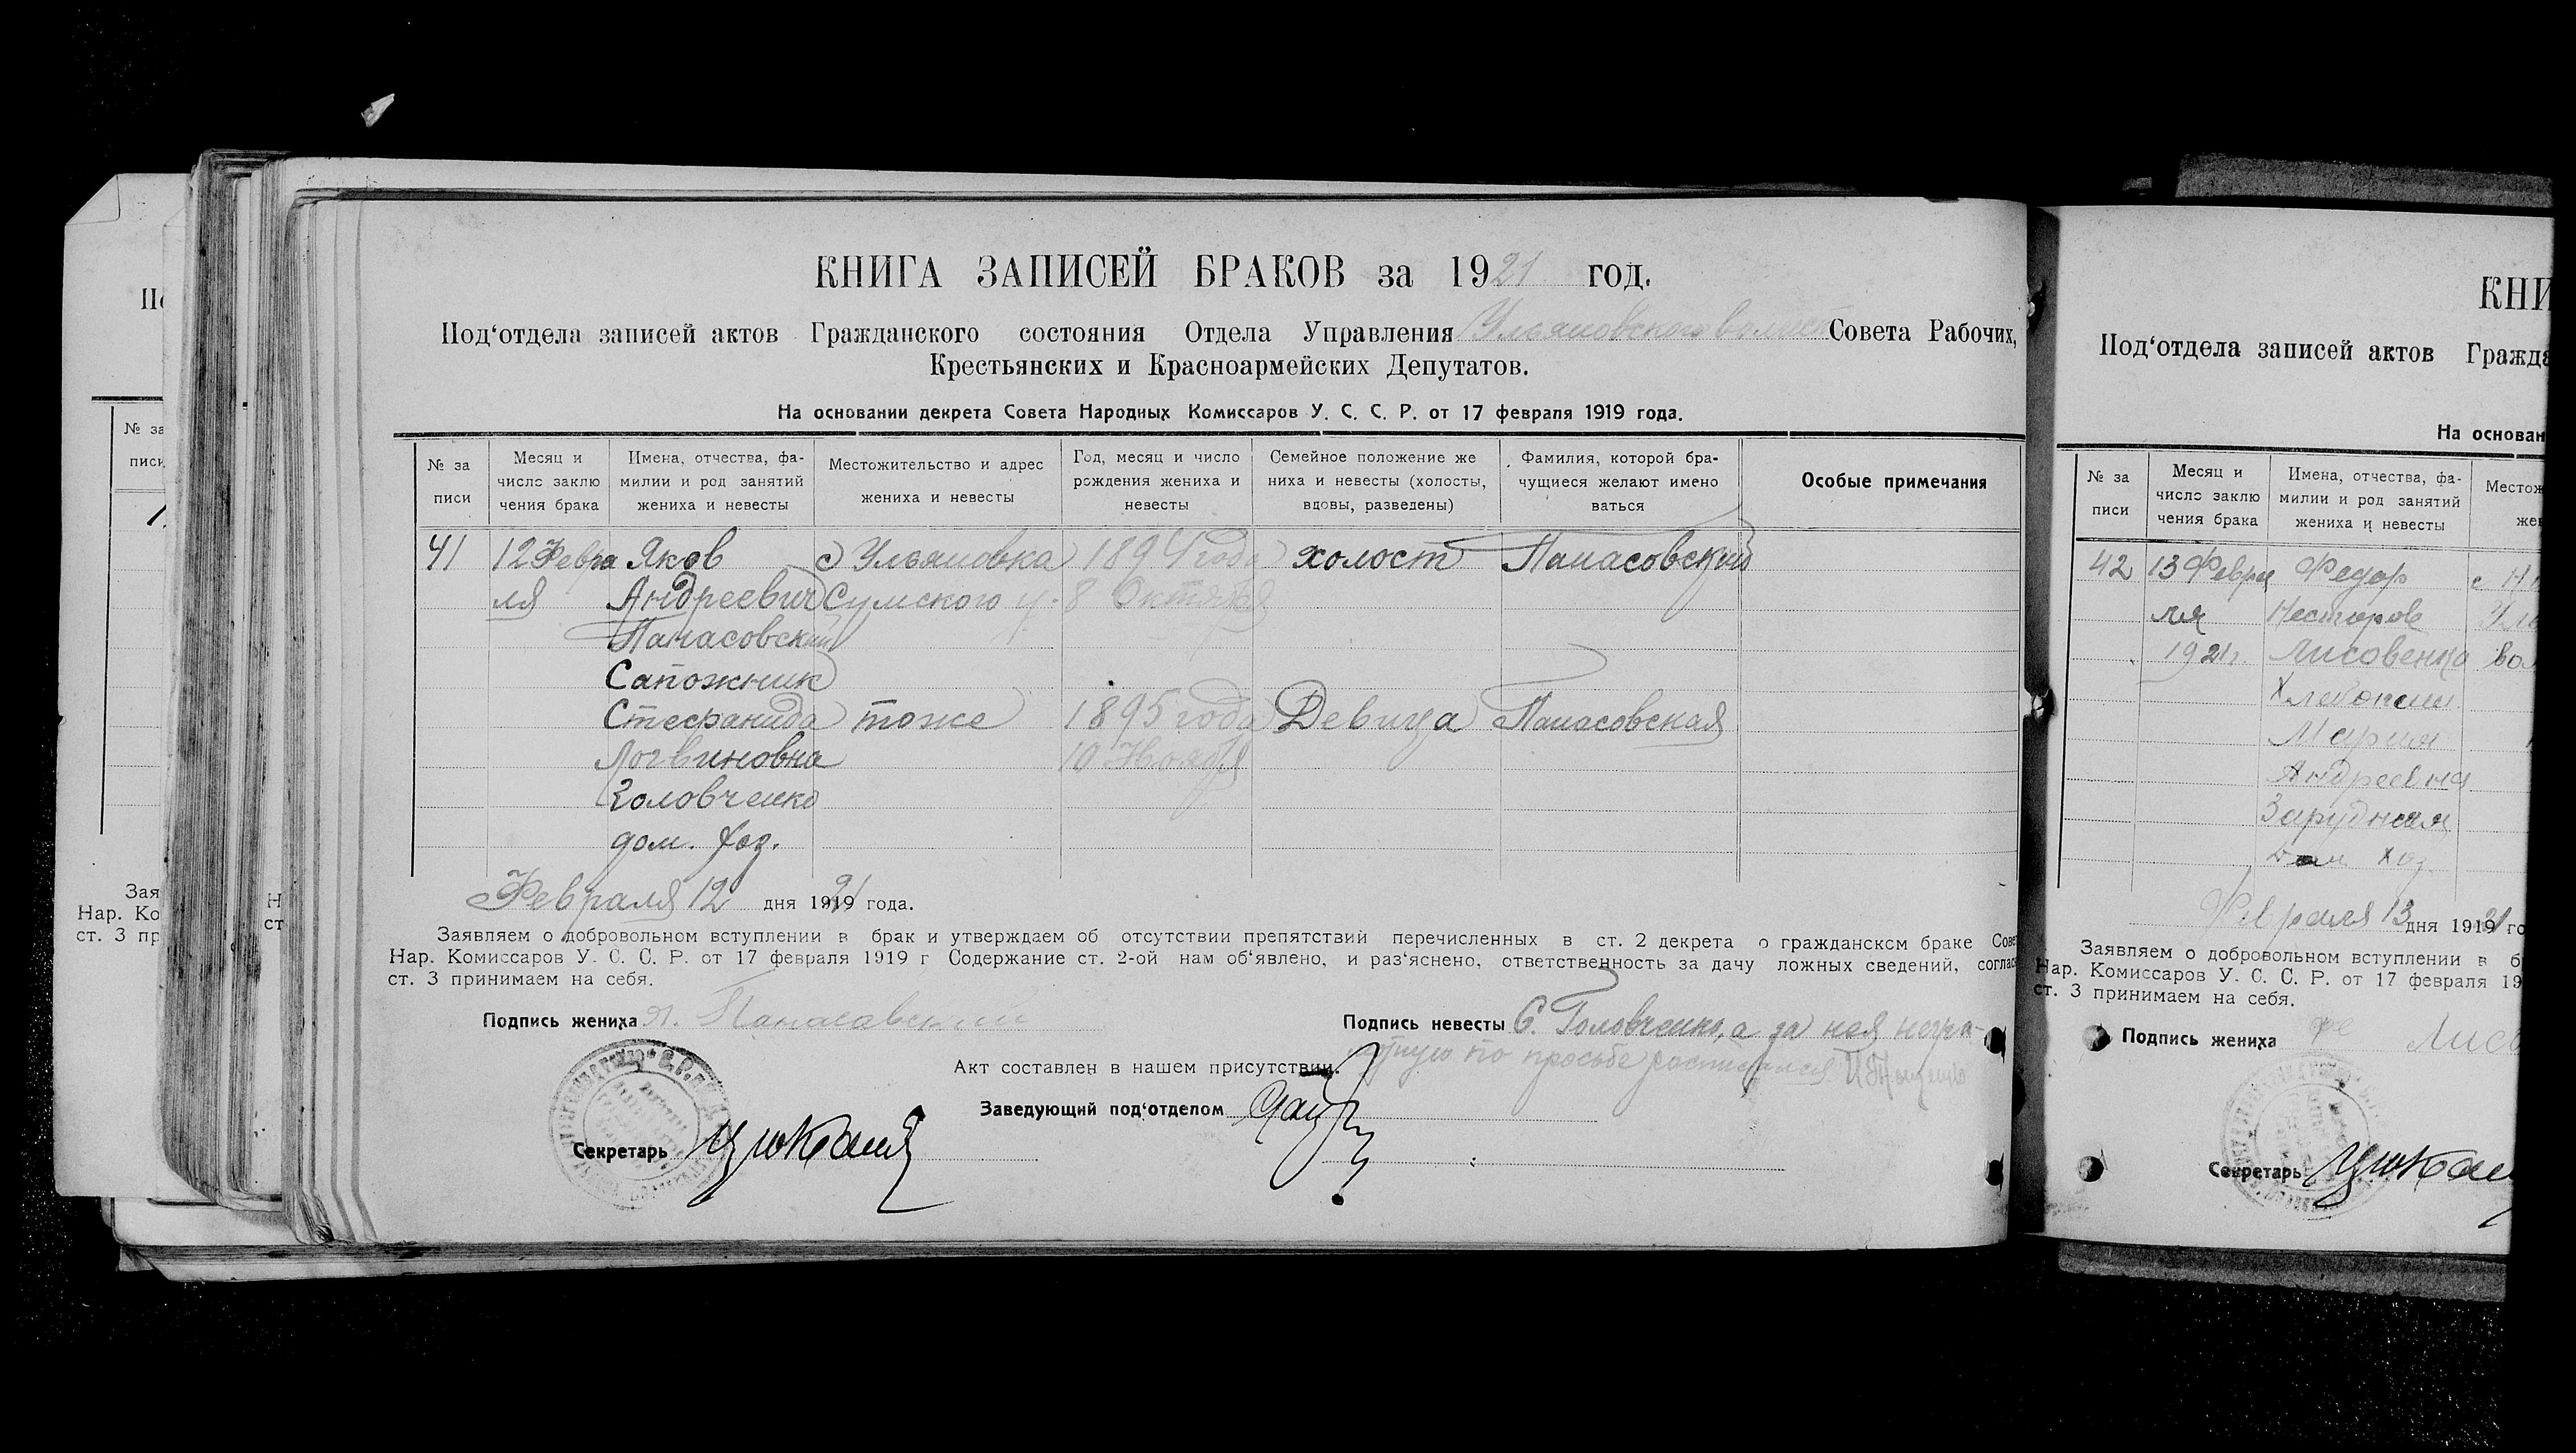 КНИГА ЗАПИСЕЙ БРАКОВ за 1921 год.
Под‘отдела записей актов Гражданского состояния Отдела Управления Ульяновского волист Совета Рабочих,
Крестьянских и Красноармейских Депутатов.
На основании декрета Совета Народных Комиссаров У. С. С. Р. от 17 февраля 1919 года.
№ за
писи
Месяц и
число заклю
чения брака
Имена, отчества, фа-
милии и род занятий
жениха и невесты
Местожительство и адрес
жениха и невесты
Год, месяц и число
рождения жениха и
невесты
Семейное положение же
ниха и невесты (холосты,
вдовы, разведены)
Фамилия, которой бра-
чущиеся желают имено
ваться
Особые примечания
41 12 Февра Яков с Ульяновка 1894 года холост Панасовский
ля Андреевич Сумского у. 8 Октября
Панасовский
Сапожник
Стефанида тоже 1895 года Девица Панасовская
Логвиновна 10 Ноября
Головченко
дом. хоз.
Февраля 12 дня 1921 года.
Заявляем о добровольном вступлении в брак и утверждаем об отсутствии препятствий перечисленных в ст. 2 декрета о гражданском браке Сове
Нар. Комиссаров У. С. С. Р. от 17 февраля 1919 г Содержание ст. 2-ой нам об‘явлено, и раз‘яснено, ответственность за дачу ложных сведений, соглас
ст. 3 принимаем на себя.
Подпись жениха Я. Панасавский
Подпись невесты С. Головченко, а за нея негра-
мотную по просьбе расписался
Акт составлен в нашем присутствии.
Заведующий под‘отделом
Секретарь
КНИ
Под‘отдела записей актов Гражда
На основан
№ за
писи
Месяц и
число заклю
чения брака
Имена, отчества, фа-
милии и род занятий
жениха и невесты
Местож
жен
42 13 Февра Федор с
ля Несторов
1921 г. Лисовенко вол
Хлебопаш
Мария
Андреевна
Зарудная
Дом хоз.
Февраля 13 дня 1921 го
Заявляем о добровольном вступлении в б
Нар. Комиссаров У. С. С. Р. от 17 февраля 19
ст. 3 принимаем на себя.
Подпись жениха Лисо
Секретарь
№ за
писи
Зая
Нар. Ко
ст. 3 пр